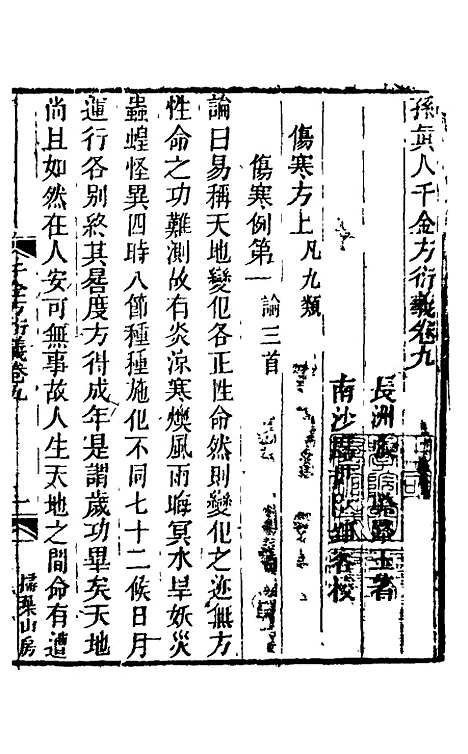 孫真人千金方衍義卷九
長洲 璐路玉著
南沙 校
傷寒方上凡九類
傷寒例第一論三首
論曰易稱天地變化各正性命然則變化之迹無方
性命之功難測故有炎涼寒燠風雨晦冥水旱妖災
蟲蝗怪異四時八節種種施化不同七十二候日月
運行各別終其晷度方得成年是謂歲功畢矣天地
尚且如然在人安可無事故人生天地之間命有遭
千金方衍義卷九
一
掃葉山房